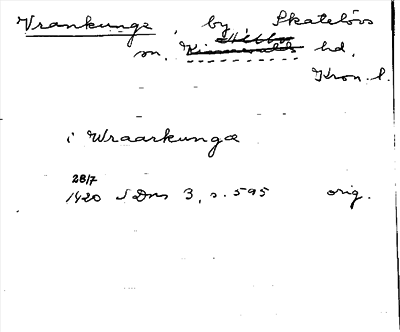 Vrankunge, by Skatelövs
sn. Kinnevalds hd.
Kron. l.
i Wraarkunga
28/7
1420 SDns 3, s. 595 orig.